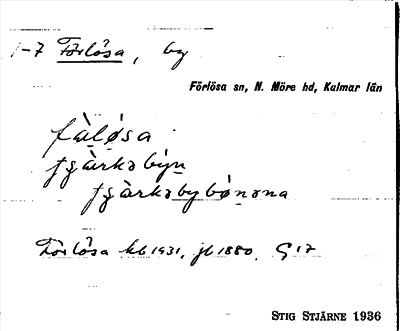 1-7 Förlösa, by
Förlösa sn, N. Möre hd, Kalmar län
fàlø̀sa
ʃɡàrkəbýn
ʃɡàrkəbybònəna
Förlösa kb 1931, jb 1880. G 17
STIG STJÄRNE 1936